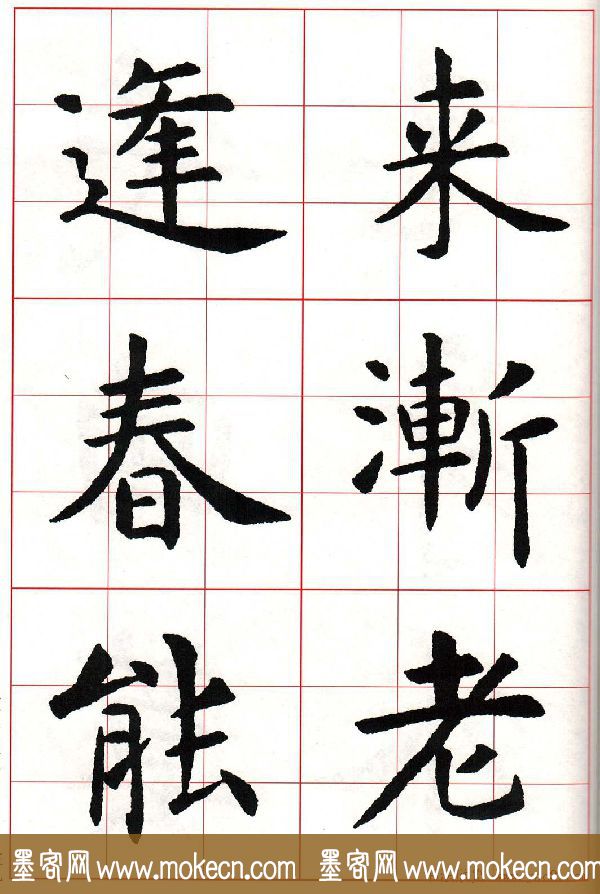 来漸老
逢春能
墨客网 www.mokecn.com 墨客网 www.mokecn.com